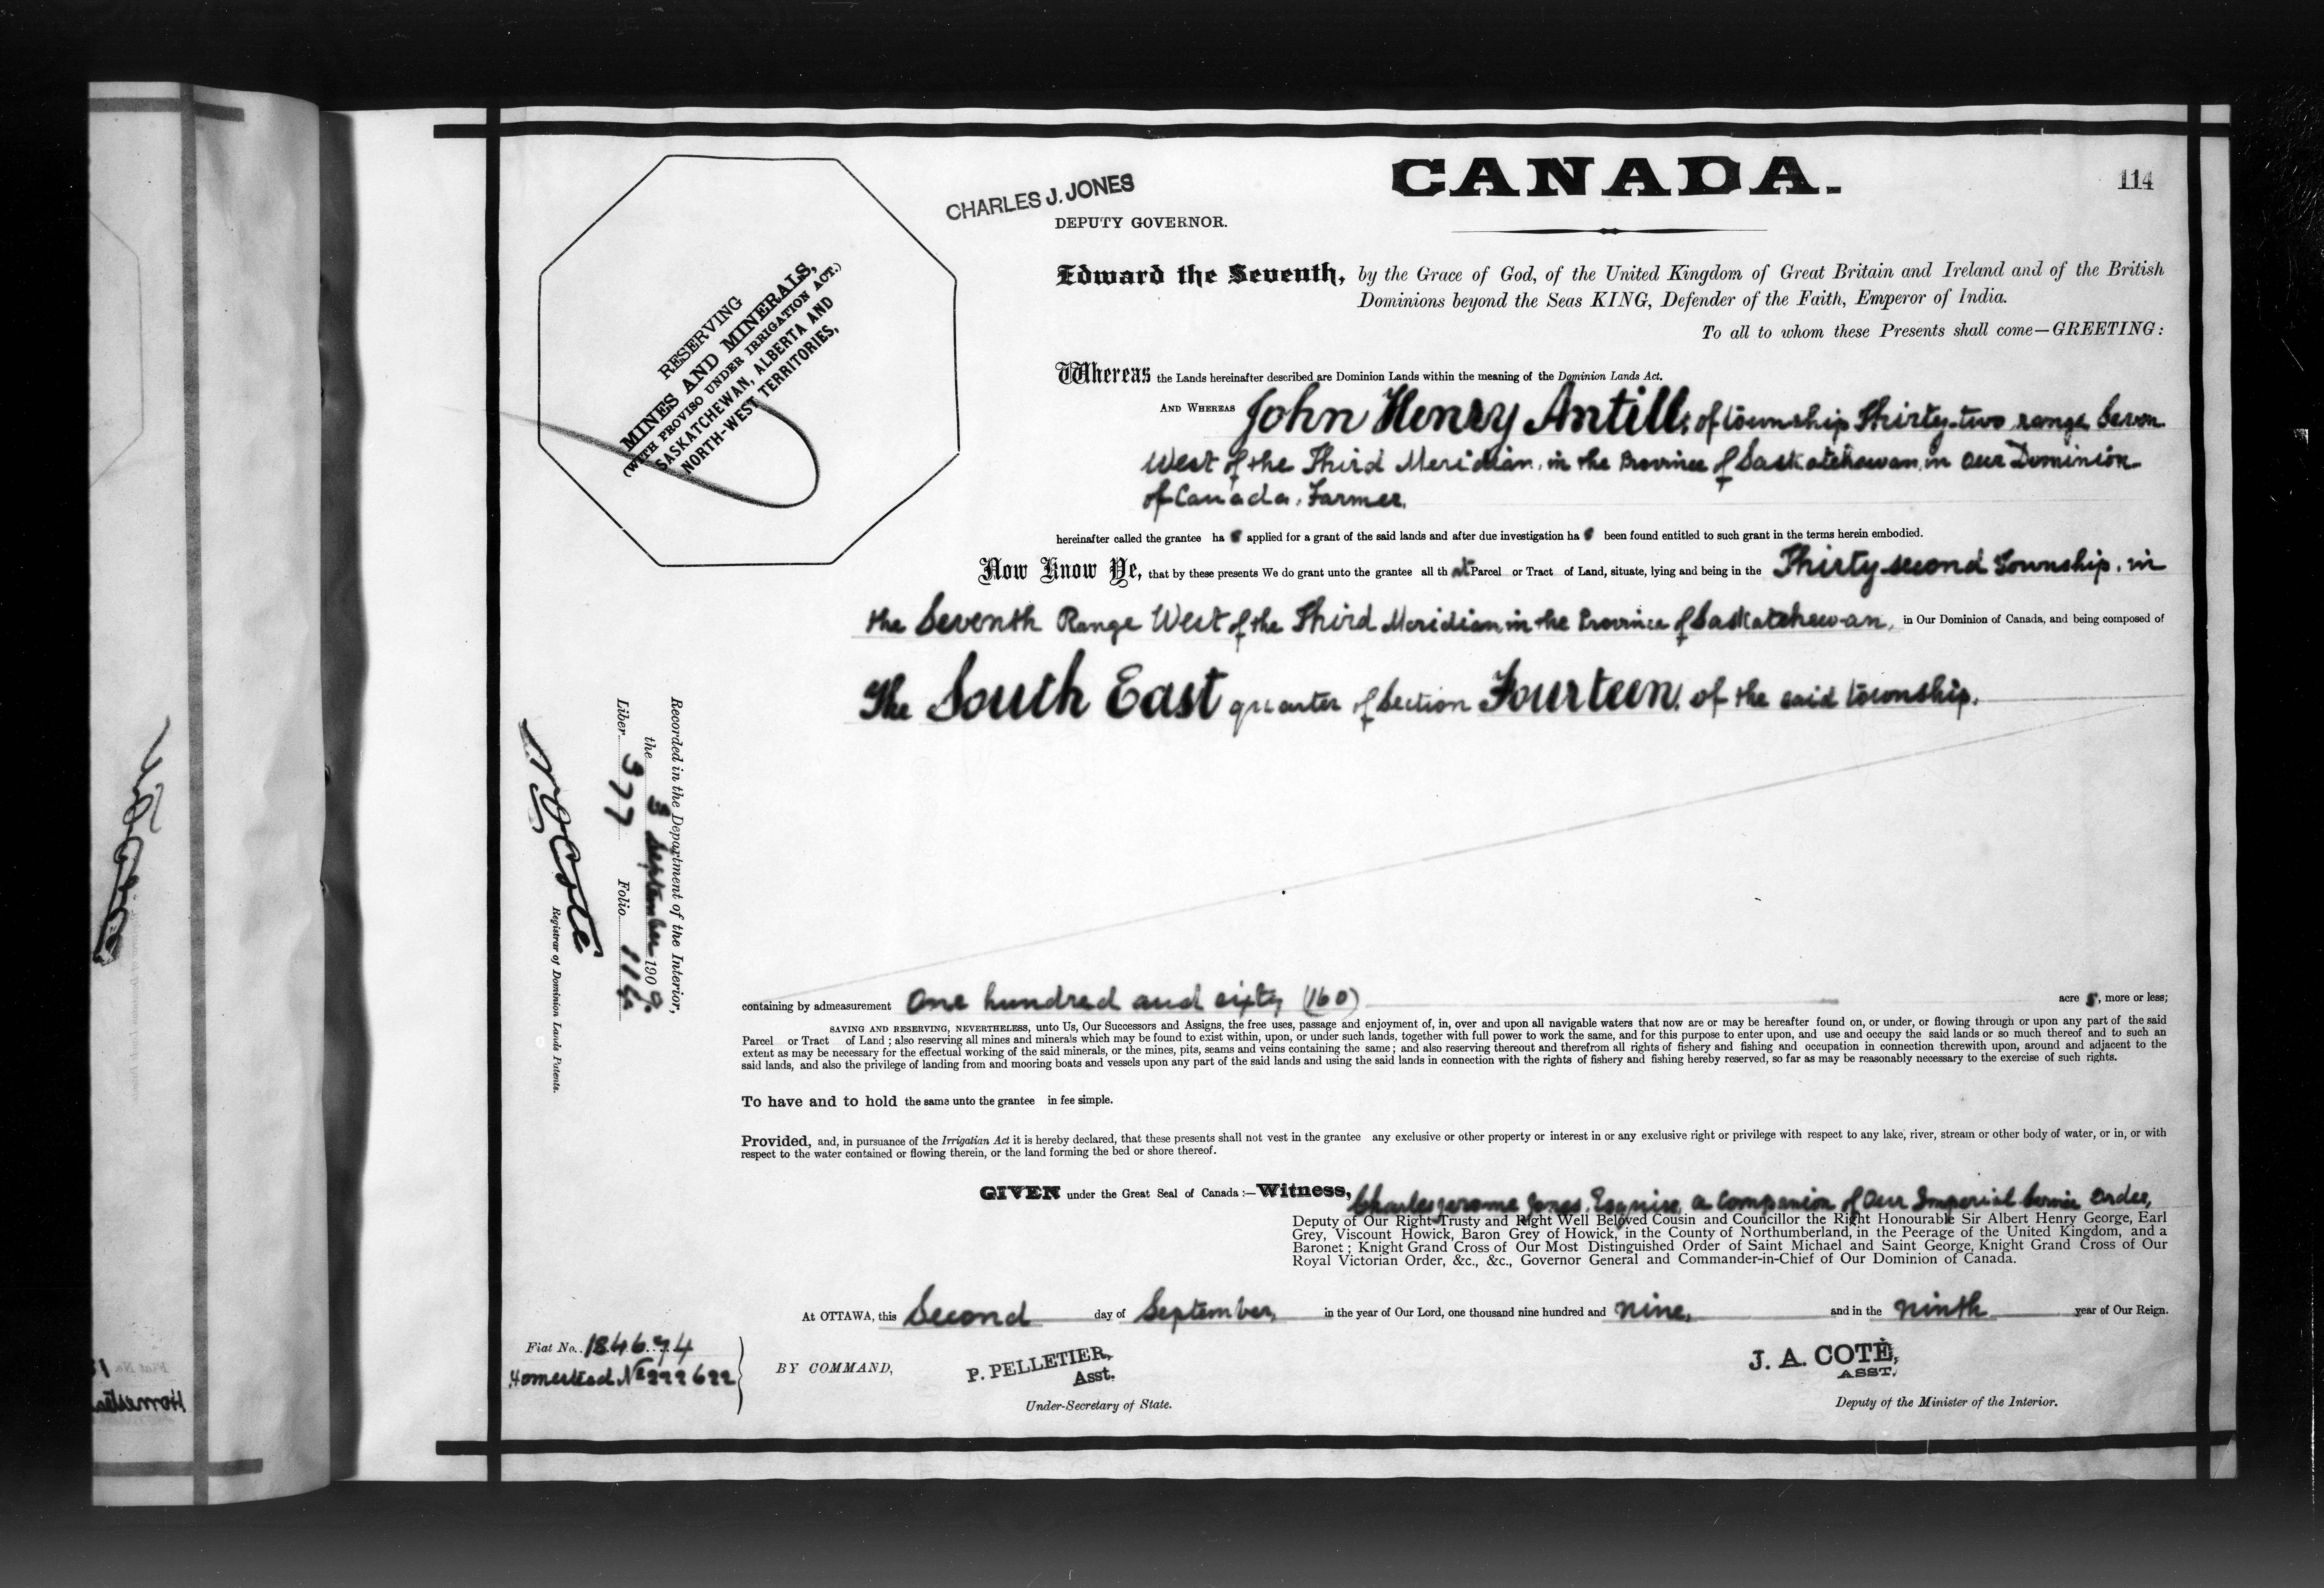 CANADA.
114
CHARLES J. JONES
DEPUTY GOVERNOR.
RESERVING
MINES AND MINERALS,
(WITH PROVISO UNDER IRRIGATION ACT.)
SASKATCHEWAN, ALBERTA AND
NORTH-WEST TERRITORIES,
Edward the Seventh, by the Grace of God, of the United Kingdom of Great Britain and Ireland and of the British
Dominions beyond the Seas KING, Defender of the Faith, Emperor of India.
To all to whom these Presents shall come—GREETING:
Whereas the Lands hereinafter described are Dominion Lands within the meaning of the Dominion Lands Act.
AND WHEREAS John Henry Antill, of township Thirty-two range Seven
West of the Third Meridian, in the Province of Saskatchewan, in Our Dominion
of Canada, Farmer,
hereinafter called the grantee has applied for a grant of the said lands and after due investigation has been found entitled to such grant in the terms herein embodied.
Now Know Ye, that by these presents We do grant unto the grantee all that Parcel or Tract of Land, situate, lying and being in the Thirty-second Township, in
the Seventh Range West of the Third Meridian, in the Province of Saskatchewan, in Our Dominion of Canada, and being composed of
The South East quarter of Section Fourteen, of the said township.
Recorded in the Department of the Interior,
the 3 September 1909.
Liber 377 Folio 114
N O Coste
Registrar of Dominion Lands Patents.
containing by admeasurement One hundred and sixty (160) acres, more or less;
SAVING AND RESERVING, NEVERTHELESS, unto Us, Our Successors and Assigns, the free uses, passage and enjoyment of, in, over and upon all navigable waters that now are or may be hereafter found on, or under, or flowing through or upon any part of the said
Parcel or Tract of Land; also reserving all mines and minerals which may be found to exist within, upon, or under such lands, together with full power to work the same, and for this purpose to enter upon, and use and occupy the said lands or so much thereof and to such an
extent as may be necessary for the effectual working of the said minerals, or the mines, pits, seams and veins containing the same; and also reserving thereout and therefrom all rights of fishery and fishing and occupation in connection therewith upon, around and adjacent to the
said lands, and also the privilege of landing from and mooring boats and vessels upon any part of the said lands and using the said lands in connection with the rights of fishery and fishing hereby reserved, so far as may be reasonably necessary to the exercise of such rights.
To have and to hold the same unto the grantee in fee simple.
Provided, and, in pursuance of the Irrigatian Act it is hereby declared, that these presents shall not vest in the grantee any exclusive or other property or interest in or any exclusive right or privilege with respect to any lake, river, stream or other body of water, or in, or with
respect to the water contained or flowing therein, or the land forming the bed or shore thereof.
GIVEN under the Great Seal of Canada:—Witness, Charles Jerome Jones, Esquire, a Companion of Our Imperial Service Order,
Deputy of Our Right Trusty and Right Well Beloved Cousin and Councillor the Right Honourable Sir Albert Henry George, Earl
Grey, Viscount Howick, Baron Grey of Howick, in the County of Northumberland, in the Peerage of the United Kingdom, and a
Baronet; Knight Grand Cross of Our Most Distinguished Order of Saint Michael and Saint George, Knight Grand Cross of Our
Royal Victorian Order, &c., &c., Governor General and Commander-in-Chief of Our Dominion of Canada.
At OTTAWA, this Second day of September, in the year of Our Lord, one thousand nine hundred and nine, and in the ninth year of Our Reign.
Fiat No. 184674
Homestead No 222622
BY COMMAND,
P. PELLETIER,
Asst.
Under-Secretary of State.
J. A. COTÉ,
ASST.
Deputy of the Minister of the Interior.